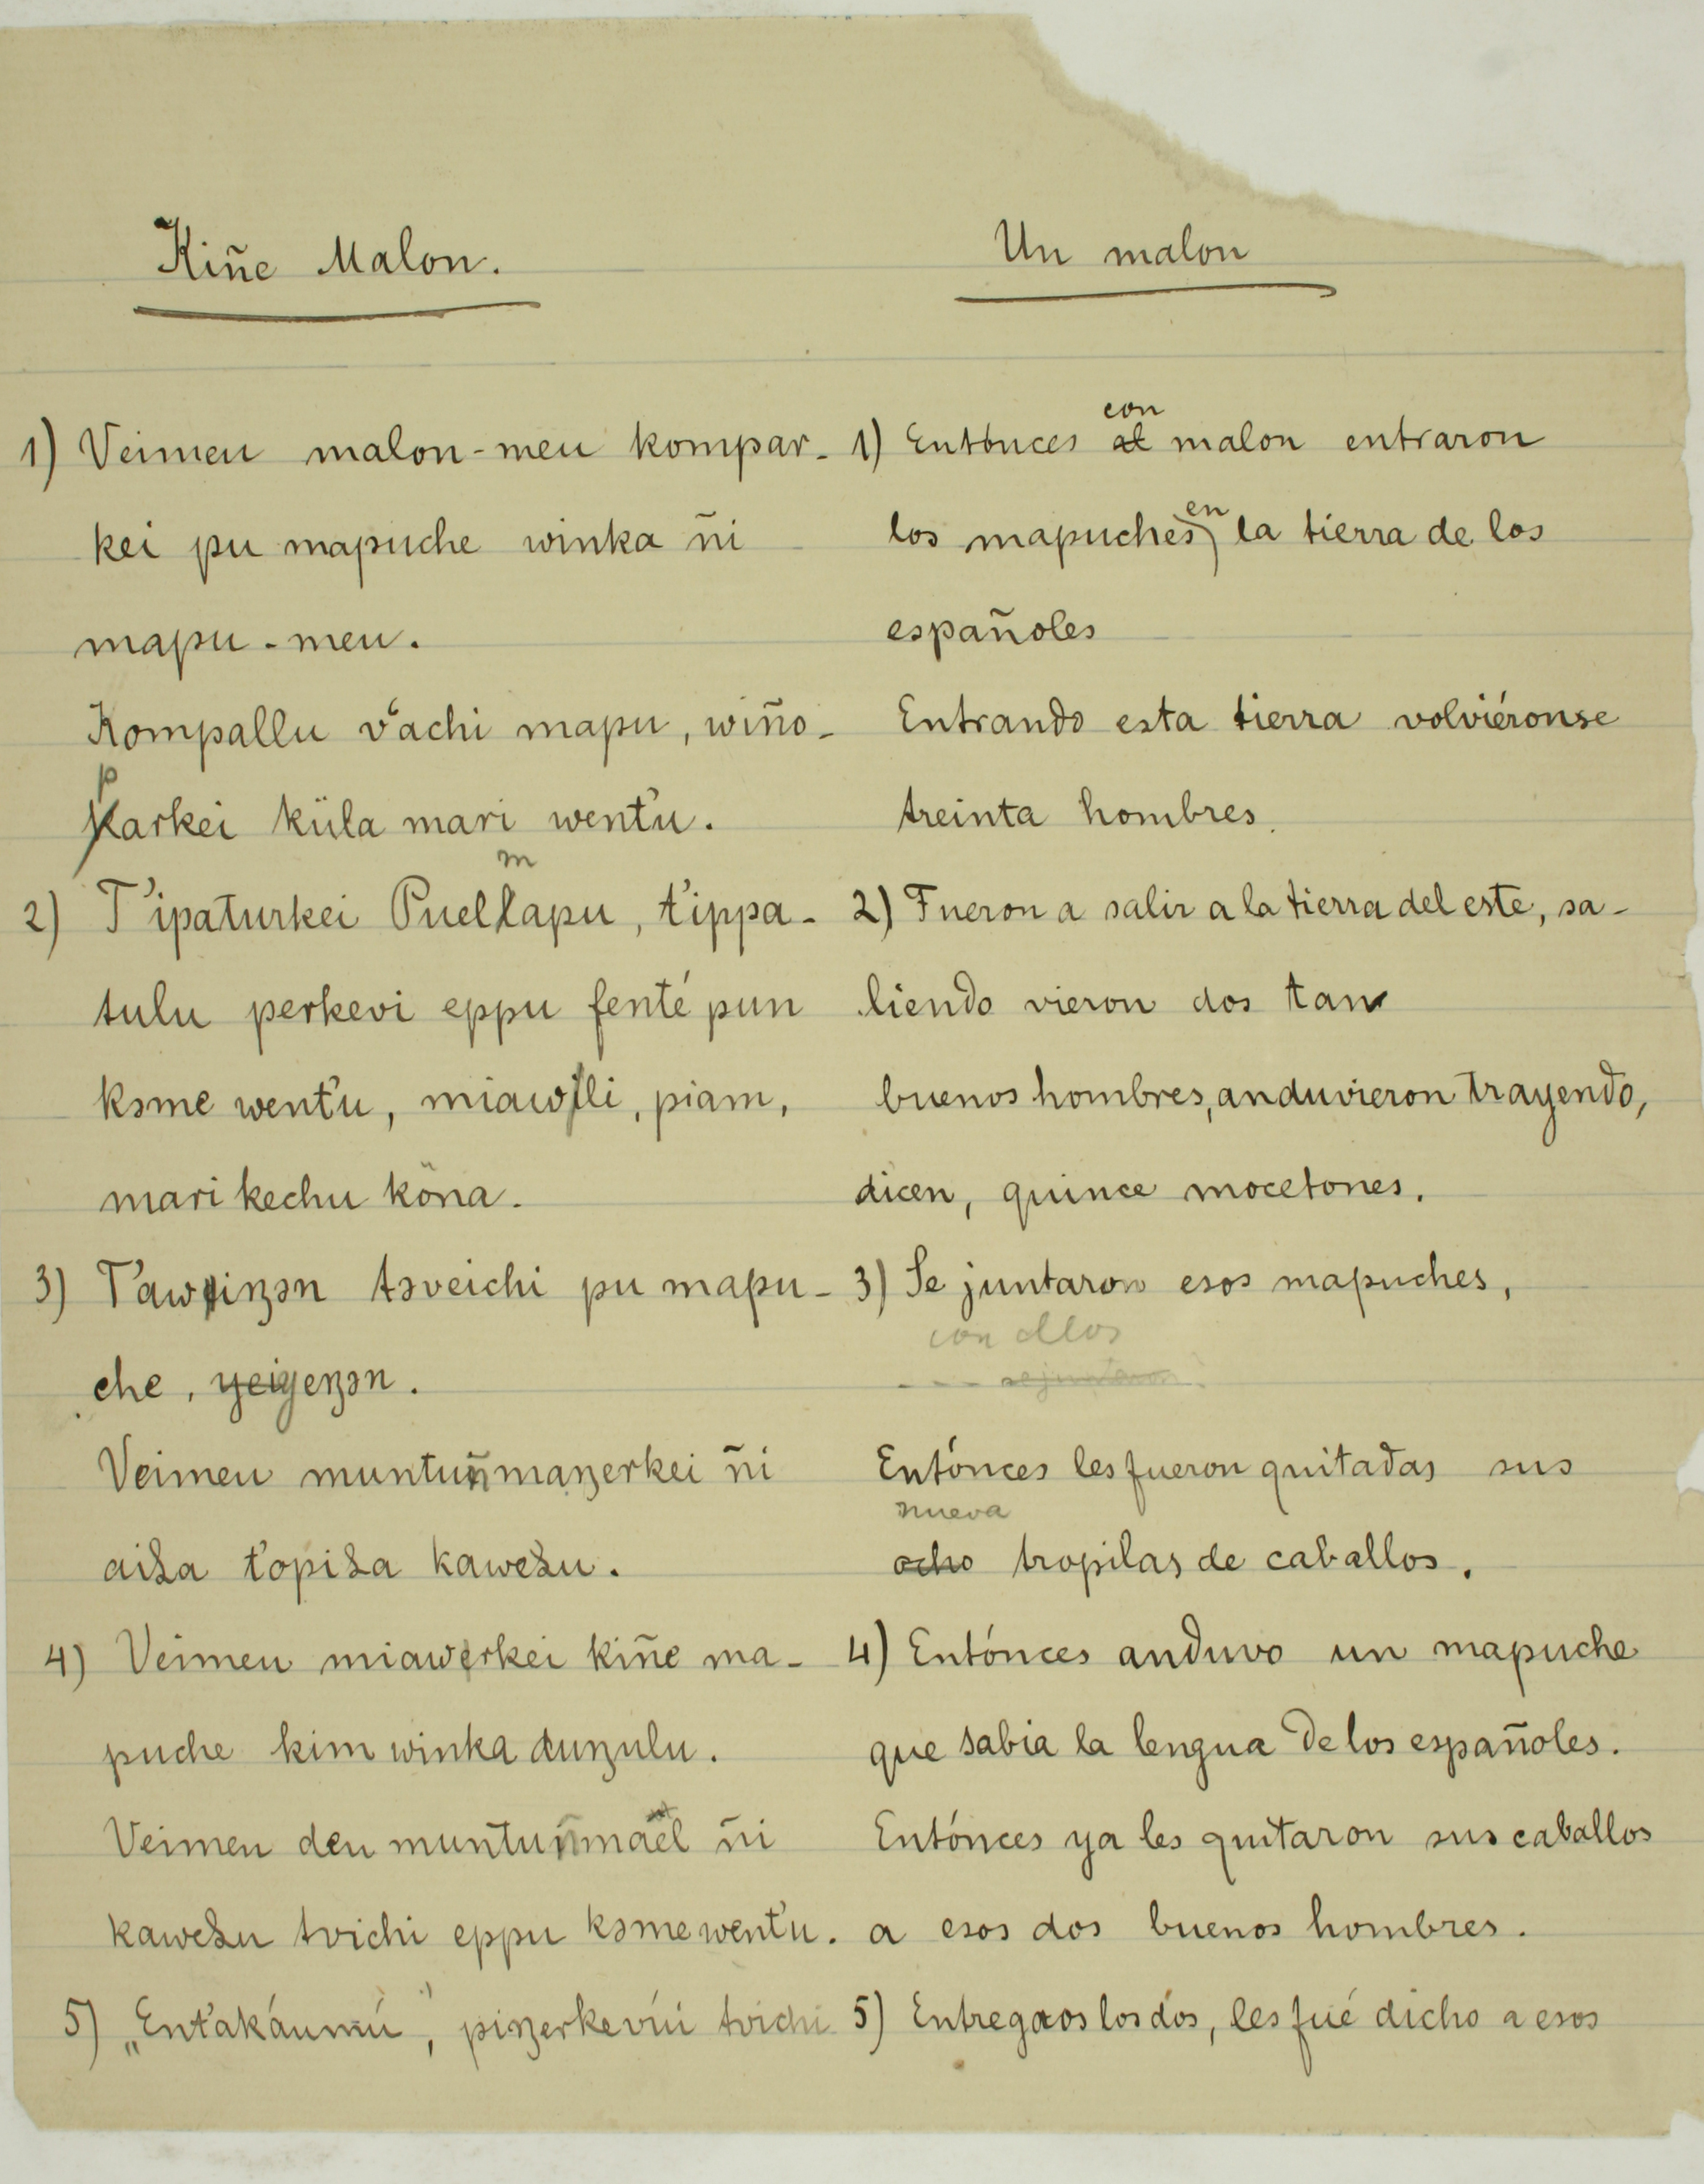 Kiñe Malon.
1) Veimeu malon-meu kompar-
kei pu mapuche winka ñi
mapu-meu.
Kompallu v́achi mapu, wiño-
p
karkei küla mari went'u.
m
2) T'ipaturkei Puellapu, t'ippa-
tulu perkevi eppu fenté pun
kəme went'u, miawlli, piam,
mari kechu köna.
3) T'awiŋən təveichi pu mapu-
che, yeiyeŋən.
Veimeu muntuñmaŋerkei ñi
aiƨa t'opiƨa kaweƨu.
4) Veimeu miawerkei kiñe ma-
puche kim winka duŋulu.
Veimeu deu muntuñmaël ñi
kaweƨu tvichi eppu kəme went'u.
5) „Ent'akáumú", piŋerkevíii tvichi
Un malon
con
1) Entónces al malon entraron
en
los mapuches la tierra de los
españoles
Entrando esta tierra volviéronse
treinta hombres.
2) Fueron a salir a la tierra del este, sa-
liendo vieron dos tan
buenos hombres, anduvieron trayendo,
dicen, quince mocetones.
3) Se juntaron esos mapuches,
con ellos
--- se juntaron.
Entónces les fueron quitadas sus
nueva
ocho tropilas de caballos.
4) Entónces anduvo un mapuche
que sabia la lengua de los españoles.
Entónces ya les quitaron sus caballos
a esos dos buenos hombres.
5) Entregaos los dos, les fué dicho a esos